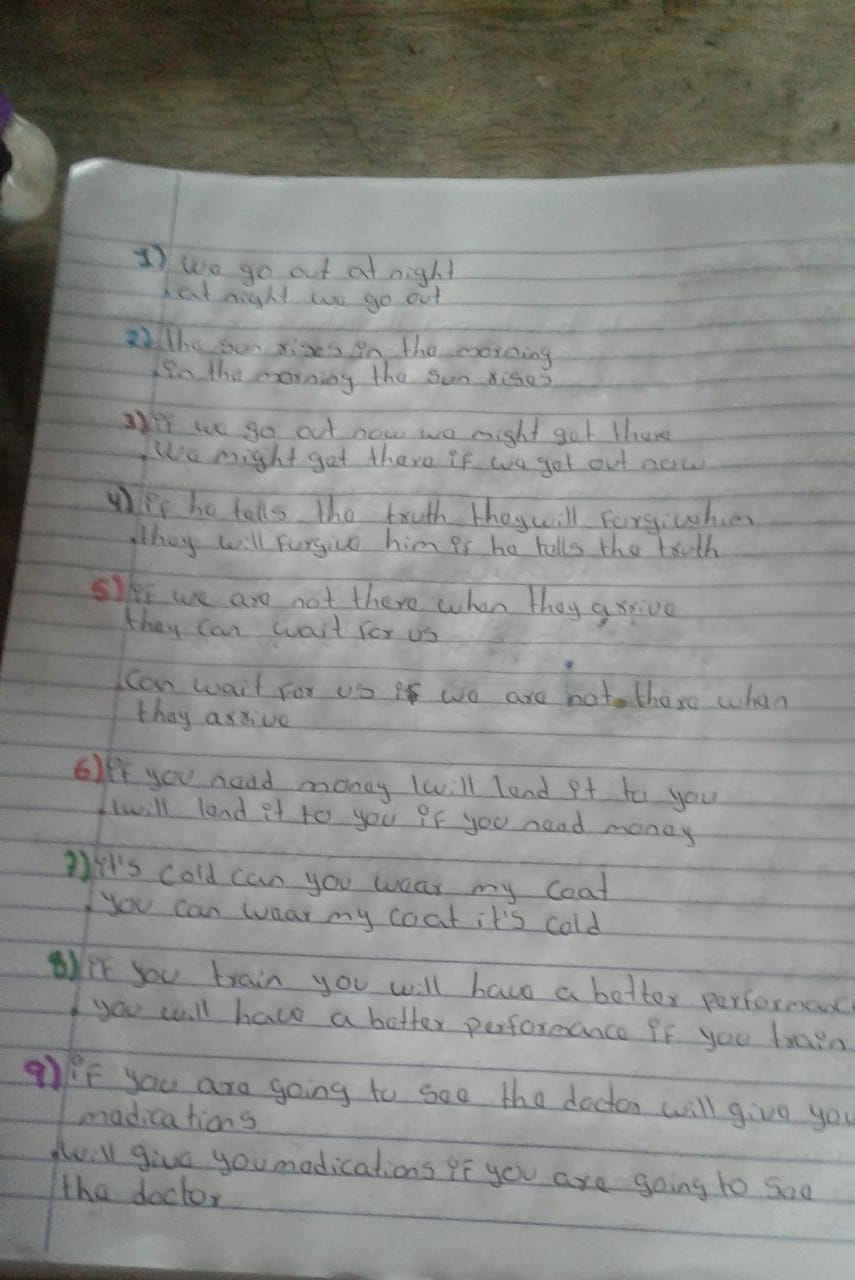 1) we go out at night
. at night we go out
2) The sun rises in the morning
. in the morning the sun rises
3) if we go out now we might get there
. We might get there if we get out now
4) if he tells the truth they will forgive him
. they will furgive him if he tells the truth
5) if we are not there when they arrive
they can wait for us
. can wait for us if we are not there when
they arrive
6) if you need money I will lend it to you
. I will lend it to you if you need money
7) it's cold can you wear my coat
. you can wear my coat it's cold
8) if you train you will have a better performanc
. you will have a better performance if you train
9) if you are going to see the doctor will give you
medications
. will give you medications if you are going to see
the doctor